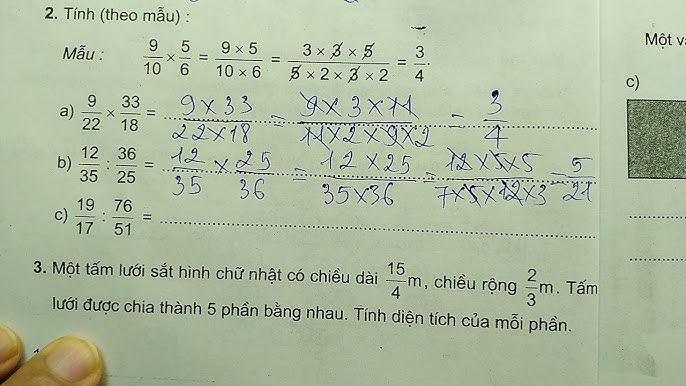 2. Tính (theo mẫu) :
Mẫu : 9/10 × 5/6 = 9 × 5/10 × 6 = 3 × 3 × 5/5 × 2 × 3 × 2 = 3/4.
a) 9/22 × 33/18 = 9 × 33/22 × 18 = 9 × 3 × 11/11 × 2 × 9 × 2 = 3/4
b) 12/35 : 36/25 = 12/35 × 25/36 = 12 × 25/35 × 36 = 12 × 5 × 5/7 × 5 × 12 × 3 = 5/21
c) 19/17 : 76/51 =
3. Một tấm lưới sắt hình chữ nhật có chiều dài 15/4 m, chiều rộng 2/3 m. Tấm
lưới được chia thành 5 phần bằng nhau. Tính diện tích của mỗi phần.
Một
c)